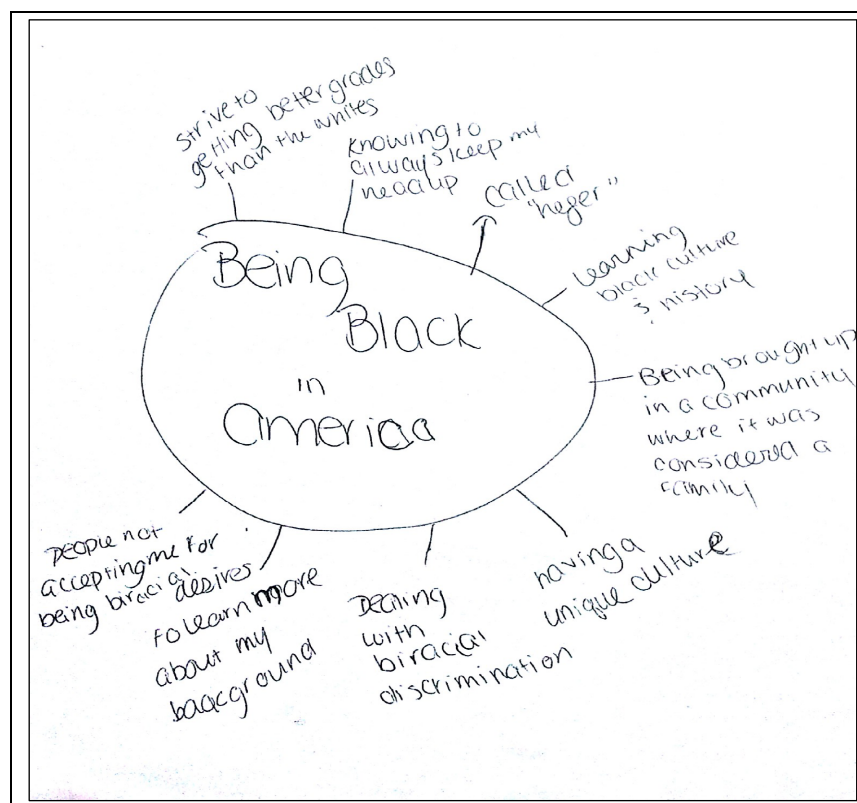 Being
Black
in
America
strive to
getting better grades
than the whites
Knowing to
always keep my
head up
called
"neger"
Learning
black culture
& history
Being brought up
in a community
where it was
considered a
family
having a
unique culture
Dealing
with
biracial
discrimination
desires
to learn more
about my
background
people not
accepting me for
being biracial